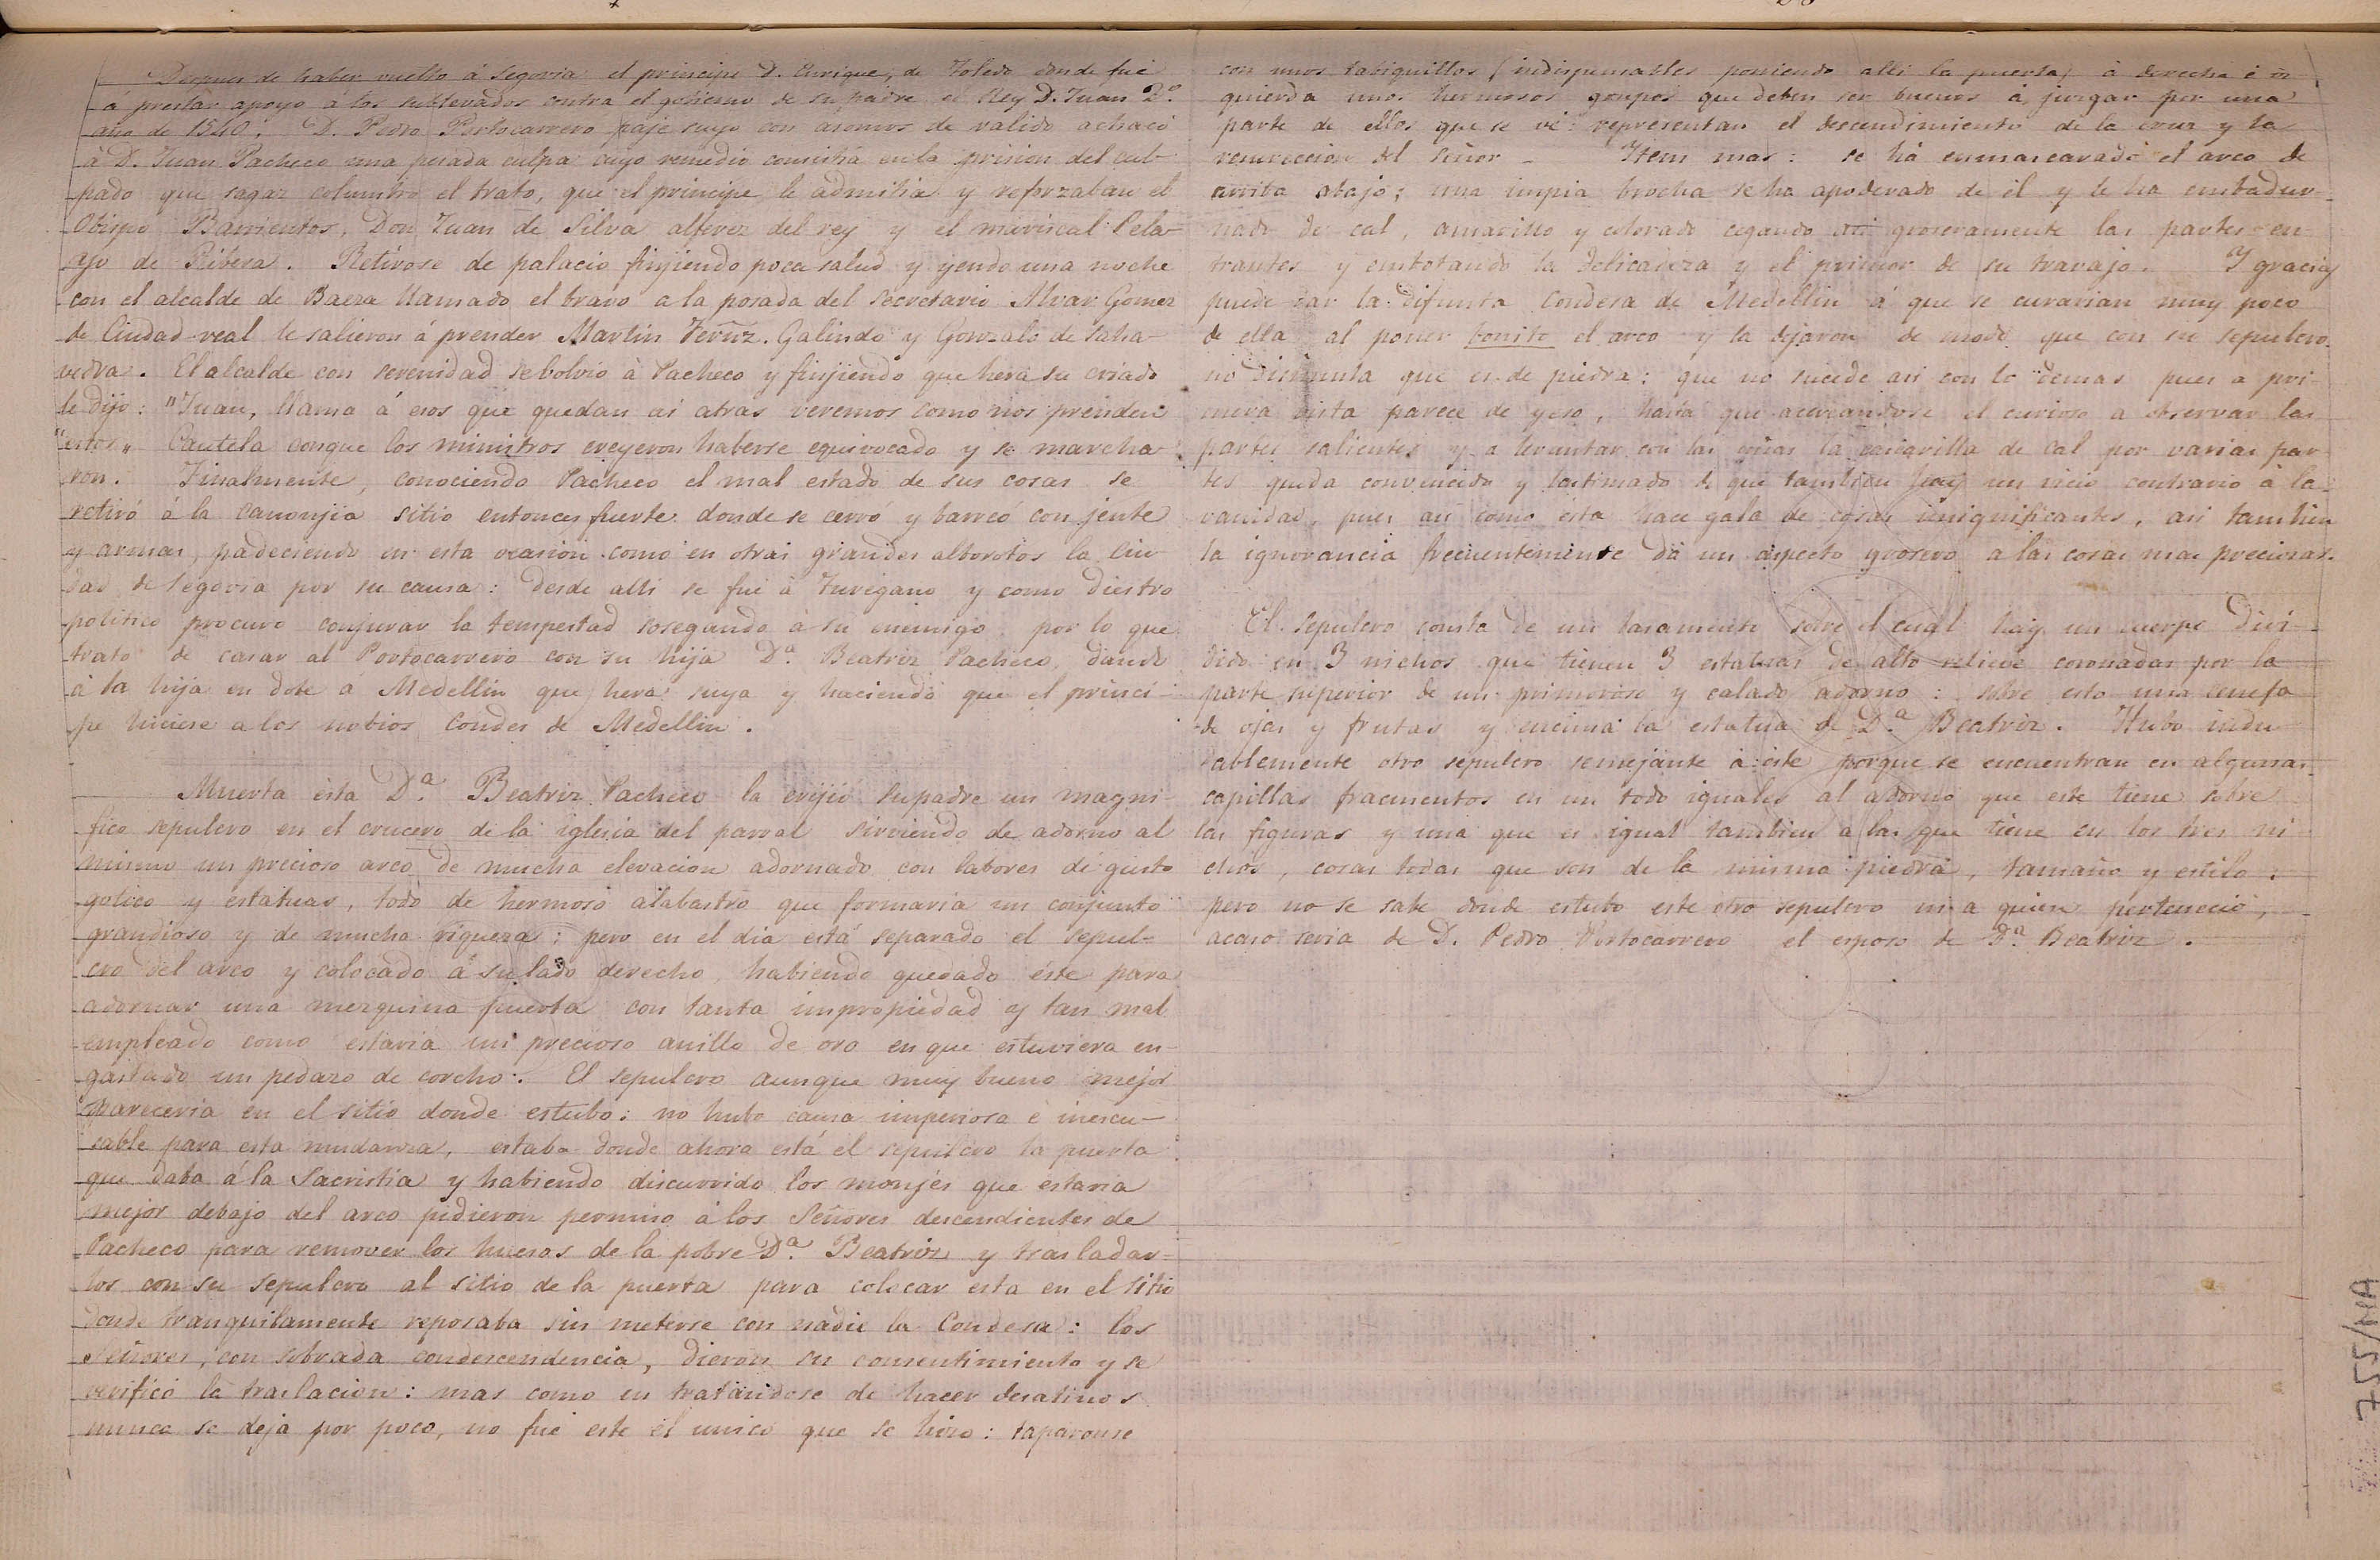 Despues de haber vuelto á Segovia el principe D. Enrique, de Toledo donde fué
á prestar apoyo á los sublevados contra el gobierno de su padre el Rey D. Juan 2º
año de 1540: D. Pedro Portocarrero paje suyo con asomos de valido achacó
á D. Juan Pacheco una pesada culpa cuyo remedio consistia en la prision del cul-
pado que sagaz columbró el trato, que el principe le admitia y reforzaban el
Obispo Barrientos, Don Juan de Silva alferez del rey y el mariscal Pela-
yo de Ribera. Retirose de palacio finjiendo poca salud y yendo una noche
con el alcalde de Baeza llamado el bravo a la posada del secretario Alvar Gomez
de Ciudad-real le salieron á prender Martin Ferñz. Galindo y Gonzalo de Saha-
vedra. El alcalde con serenidad se bolvió à Pacheco y finjiendo que hera su criado
le dijo: "Juan, llama á esos que quedan ai atras veremos como nos prenden
"estos„ Cautela conque los ministros creyeron haberse equivocado y se marcha-
ron. Finalmente, conociendo Pacheco el mal estado de sus cosas se
retiró á la canonjia sitio entonces fuerte donde se cerró y barreó con jente
y armas, padeciendo en esta ocasion como en otras grandes alborotos la Ciu-
dad de Segovia por su causa: desde alli se fue à Turégano y como diestro
politico procuró conjurar la tempestad sosegando à su enemigo por lo que
trató de casar al Portocarrero con su hija Dª. Beatriz Pacheco, dando
à la hija en dote a Medellin que hera suya y haciendo que el princi-
pe hiciese a los nobios Condes de Medellin.
Muerta ésta Dª. Beatriz Pacheco la erijió su padre un magni-
fico sepulcro en el crucero de la iglesia del parral sirviendo de adorno al
mismo un precioso arco de mucha elevacion adornado con labores de gusto
gotico y estatuas, todo de hermoso alabastro que formaria un conjunto
grandioso y de mucha riqueza: pero en el dia está separado el sepul-
cro del arco y colocado á su lado derecho, habiendo quedado éste para
adornar una mezquina puerta con tanta impropiedad y tan mal
empleado como estaria un precioso anillo de oro en que estuviera en-
gastado un pedazo de corcho. El sepulcro aunque muy bueno mejor
pareceria en el sitio donde estubo: no hubo causa imperiosa é inescu-
sable para esta mudanza, estaba donde ahora está el sepulcro la puerta
que daba á la Sacristia y habiendo discurrido los monjes que estaria
mejor debajo del arco pidieron permiso á los Señores descendientes de
Pacheco para remover los huesos de la pobre Dª. Beatriz y trasladar-
los con su sepulcro al sitio de la puerta para colocar esta en el sitio
donde tranquilamente reposaba sin meterse con nadie la Condesa: los
Señores, con sobrada condescendencia, dieron su consentimiento y se
verificó la traslacion: mas como en tratandose de hacer desatinos
nunca se deja por poco, no fue este el unico que se hizo: taparonse
con unos tabiquillos (indispensables poniendo alli la puerta) à derecha é iz-
quierda unos hermosos grupos que deben ser buenos à juzgar por una
parte de ellos que se vé: representan el descendimiento de la cruz y la
resureccion del Señor _ Item mas: se há enmascarado el arco de
arriba abajo; una impia brocha se ha apoderado de él y le ha embadur-
nado de cal, amarillo y colorado cegando groseramente las partes en-
trantes y embotando la delicadeza y el primor de su travajo. Y gracias
puede dar la difunta Condesa de Medellin á que se curarian muy poco
de ella al poner bonito el arco y la dejaron de modo que con su sepulcro
no disimula que es de piedra: que no sucede asi con lo demas pues a pri-
mera vista parece de yeso, hasta que acercandose el curioso a observar las
partes salientes y a levantar con las uñas la cascarilla de cal por varias par-
tes queda convencido y lastimado de que tambien hay un vicio contrario à la
vanidad, pues asi como ésta hace gala de cosas insignificantes, asi tambien
la ignorancia frecuentemente dá un aspecto grosero a las cosas mas preciosas.
El sepulcro consta de un basamento sobre el cual hay un cuerpo divi-
dido en 3 nichos que tienen 3 estatuas de alto relieve coronadas por la
parte superior de un primoroso y calado adorno: sobre esto una cenefa
de ojas y frutas y encima la estatua de Dª. Beatriz. Hubo indu-
dablemente otro sepulcro semejante à éste porque se encuentran en algunas
capillas fracmentos en un todo iguales al adorno que este tiene sobre
las figuras y una que es igual tambien a las que tiene en los tres ni-
chos, cosas todas que son de la misma piedra, tamaño y estilo:
pero no se sabe donde estubo este otro sepulcro ni a quien pertenecio,
acaso seria de D. Pedro Portocarrero el esposo de Dª. Beatriz.